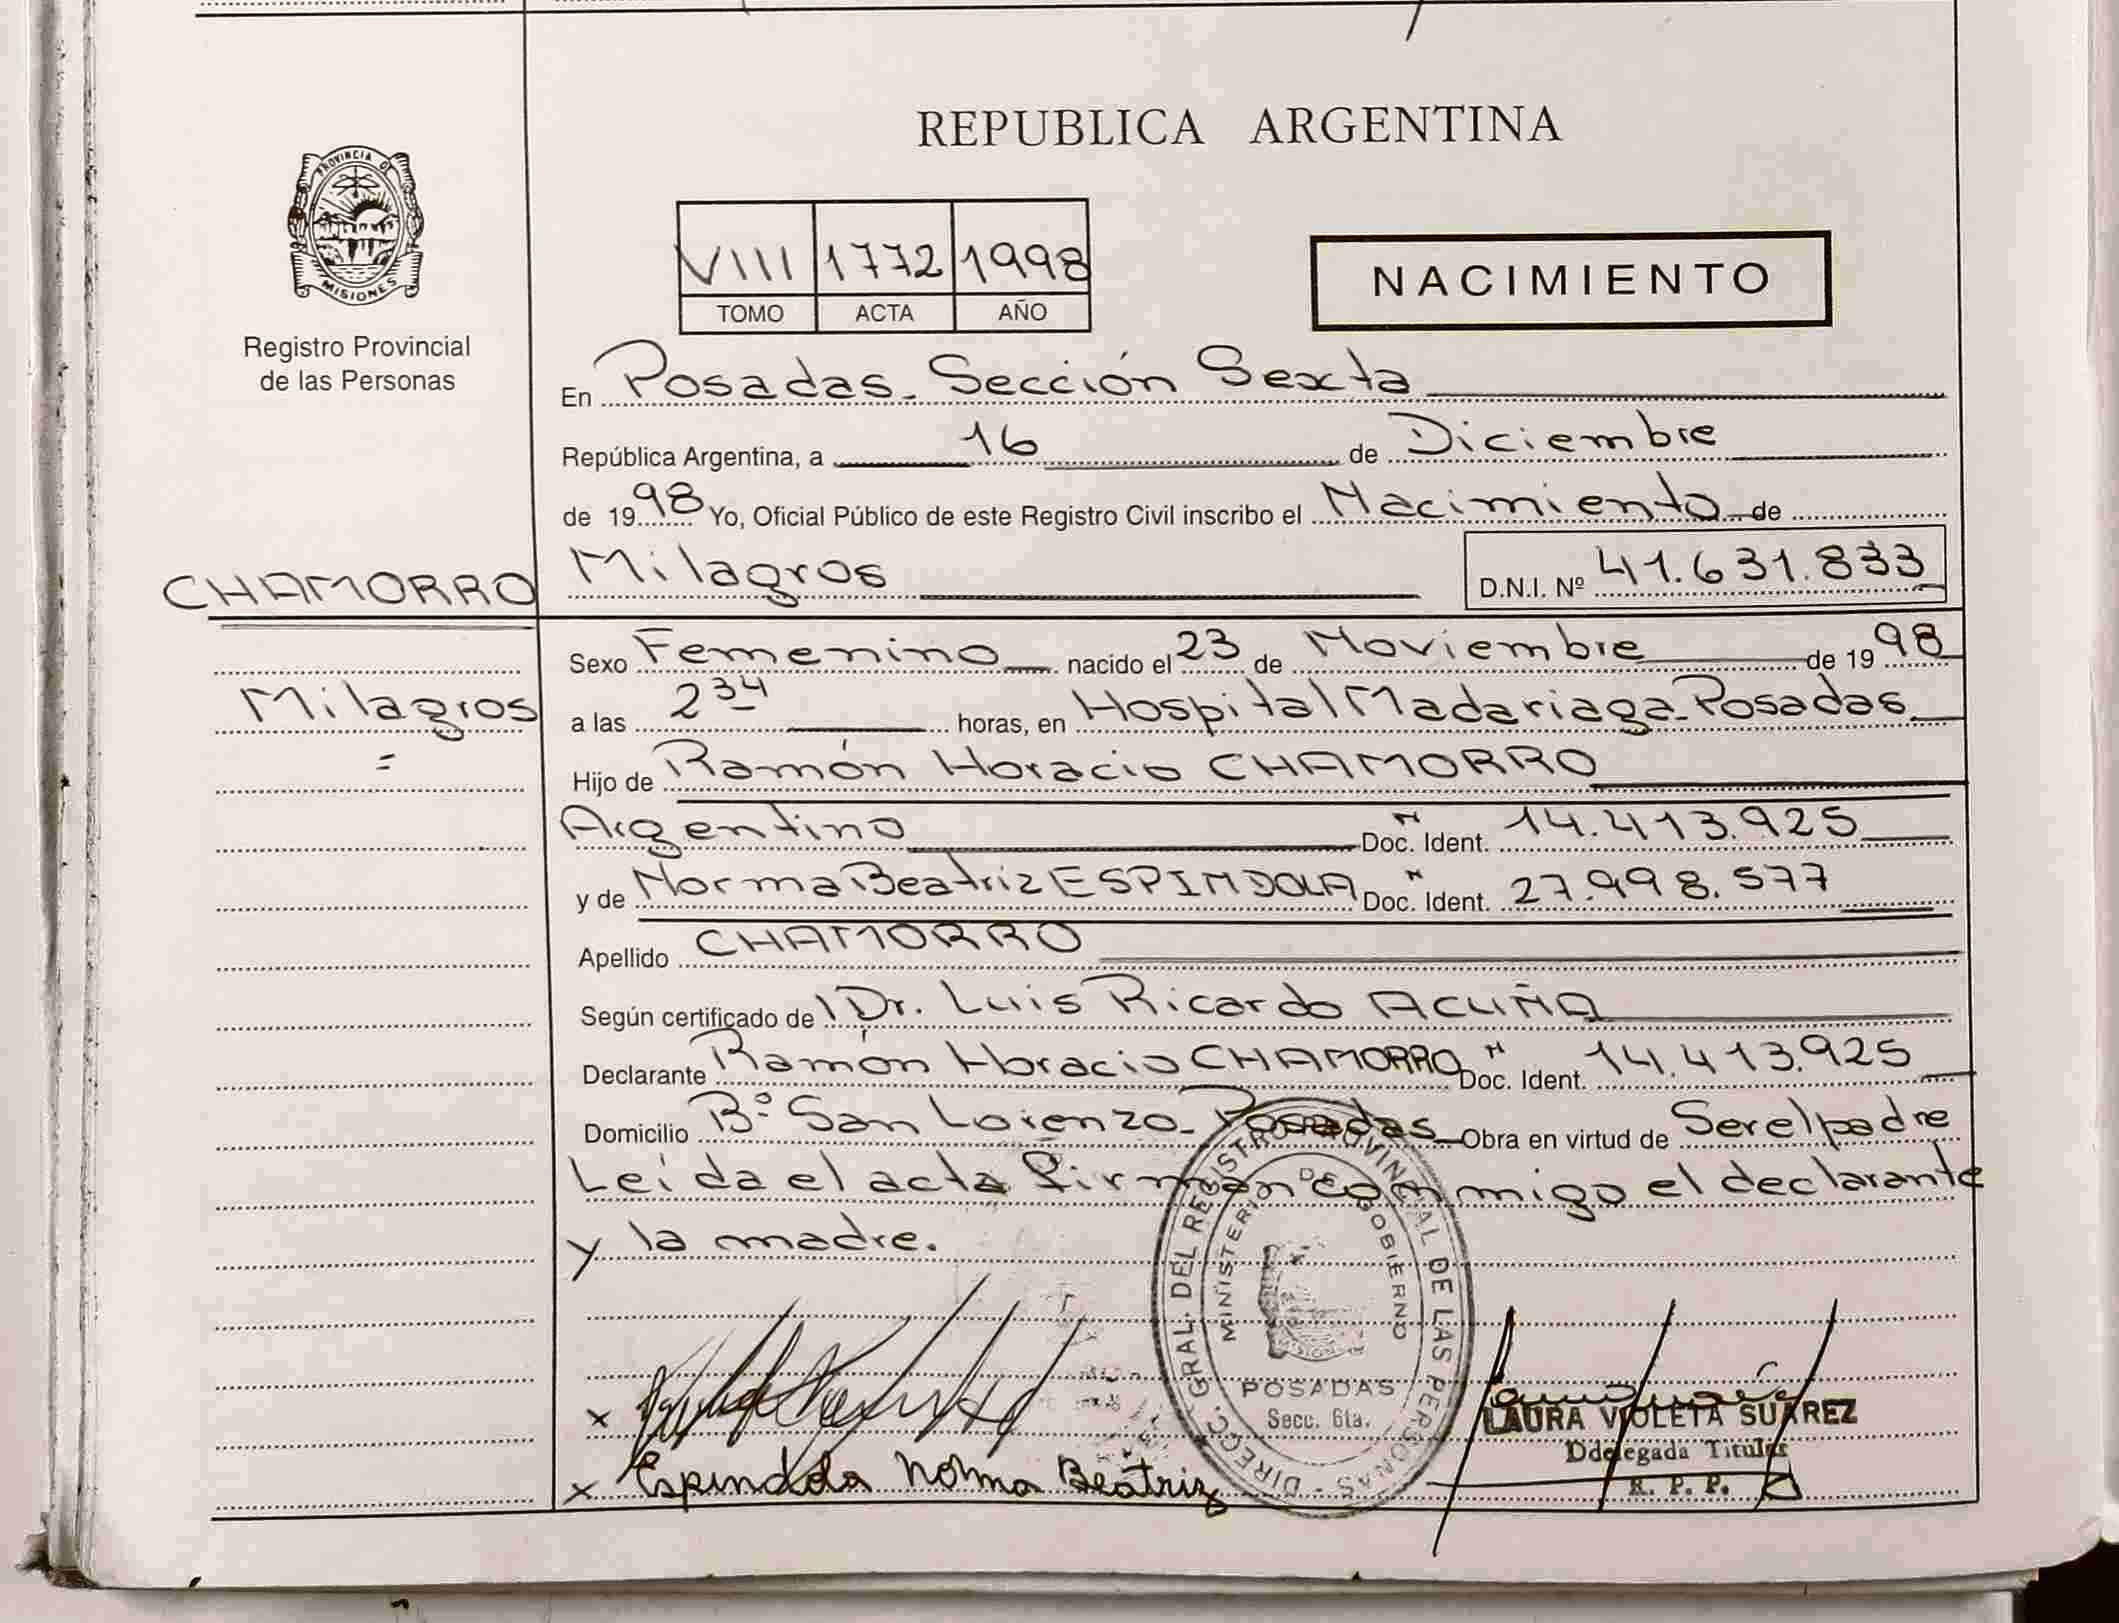 REPUBLICA ARGENTINA
PROVINCIA DE
MISIONES
Registro Provincial
de las Personas
VIII 1772 1998
TOMO ACTA AÑO
NACIMIENTO
En Posadas - Sección Sexta
República Argentina, a 16 de Diciembre
de 1998 Yo, Oficial Público de este Registro Civil inscribo el Nacimiento de
Milagros D.N.I. Nº 41.631.833
CHAMORRO
Milagros
Sexo Femenino nacido el 23 de Noviembre de 1998
a las 2 34 horas, en Hospital Madariaga - Posadas
Hijo de Ramón Horacio CHAMORRO
Argentino Doc. Ident. N 14.413.925
y de Norma Beatriz ESPINDOLA Doc. Ident. N 27.998.577
Apellido CHAMORRO
Según certificado de Dr. Luis Ricardo ACUÑA
Declarante Ramón Horacio CHAMORRO Doc. Ident. N 14.413.925
Domicilio Bº San Lorenzo - Posadas Obra en virtud de Ser el padre
Leída el acta firman conmigo el declarante
y la madre.
DIRECC. GRAL. DEL REGISTRO PROVINCIAL DE LAS PERSONAS -
MINISTERIO DE GOBIERNO
MISIONES
POSADAS
Secc. 6ta.
x
x Espindola Norma Beatriz
LAURA VIOLETA SUAREZ
Ddelegada Titular
R. P. P.